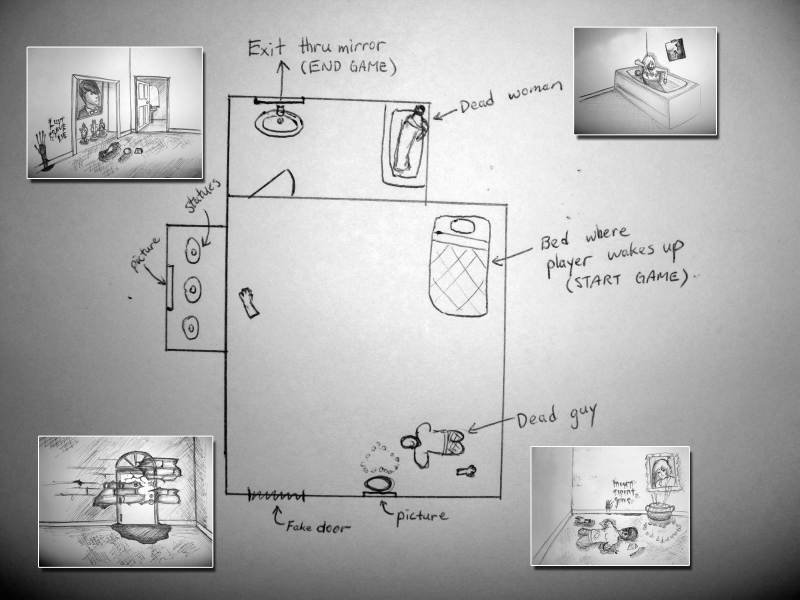 Exit thru mirror
(END GAME)
Dead woman
statues
picture
Bed where
player wakes up
(START GAME)
Dead guy
Fake door
picture